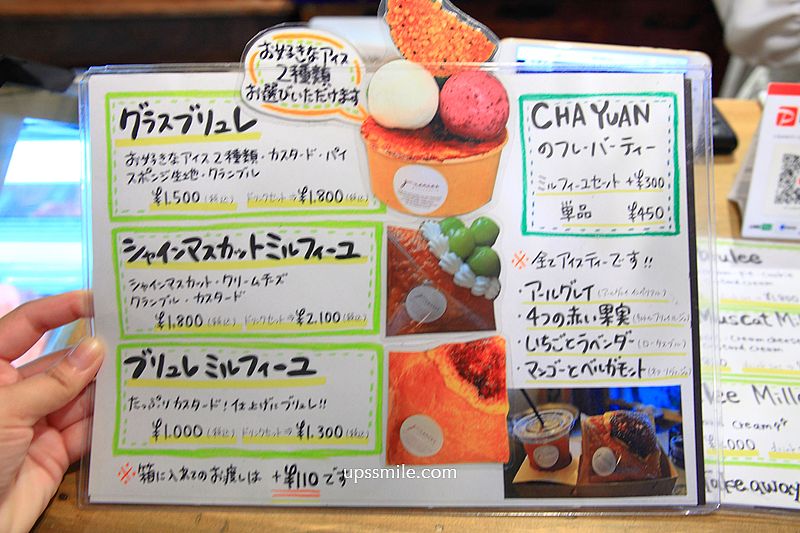 お好きなアイス
2種類
お選びいただけます
グラスブリュレ
お好きなアイス2種類・カスタード・パイ
スポンジ生地・クランブル
¥1,500(税込) ドリンクセット→¥1,800(税込)
シャインマスカットミルフィーユ
シャインマスカット・クリームチーズ
クランブル・カスタード
¥1,800(税込) ドリンクセット→¥2,100(税込)
ブリュレミルフィーユ
たっぷりカスタード!仕上げにブリュレ!!
¥1,000(税込) ドリンクセット→¥1,300(税込)
※箱に入れてのお渡しは +¥110です
CHA YUAN
のフレーバーティー
ミルフィーユセット +¥300
単品 ¥450
※全てアイスティーです!!
・アールグレイ
・4つの赤い果実
・いちごとラベンダー
・マンゴーとベルガモット
upssmile.com
ulee
uscat Mi
lee Mille
Take away